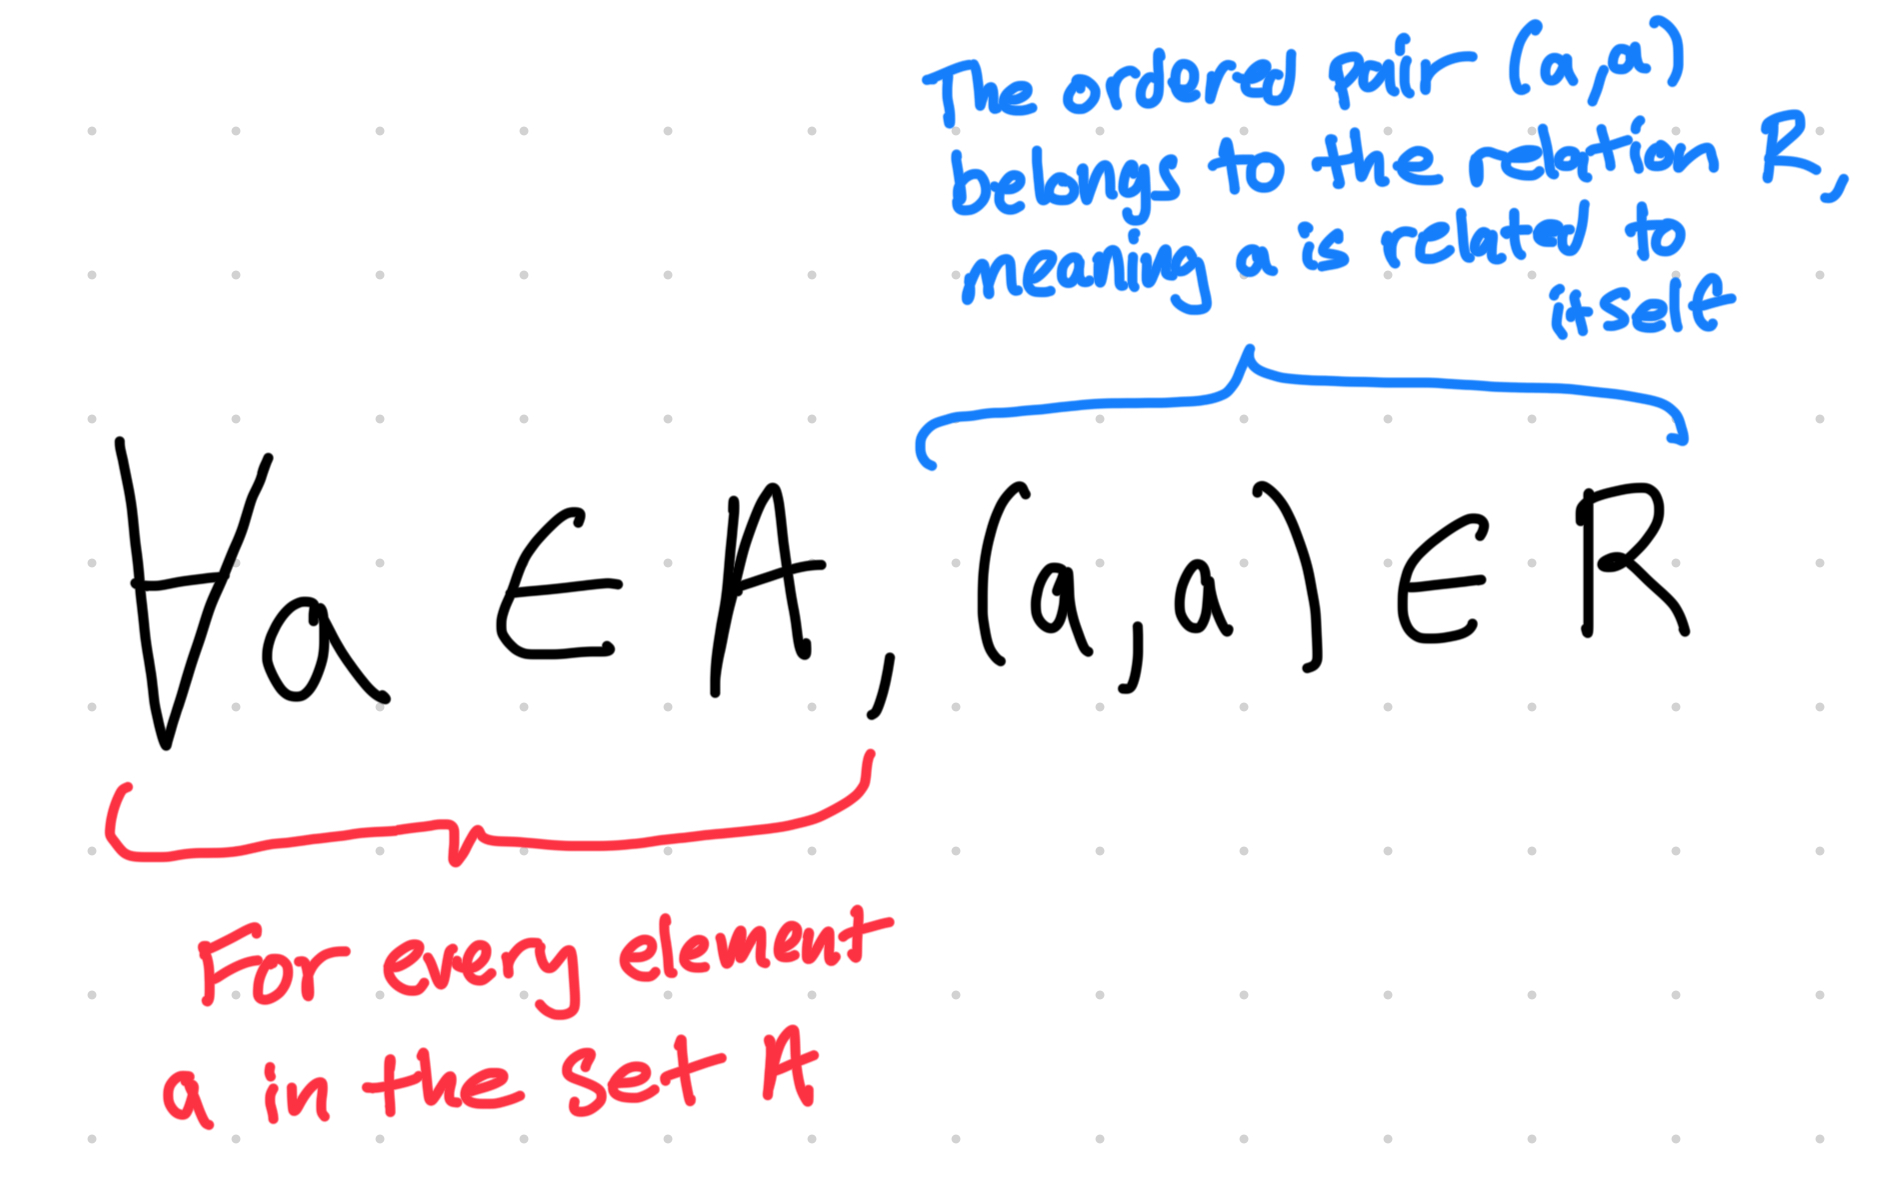 The ordered pair (a,a)
belongs to the relation R,
meaning a is related to
itself
∀a ∈ A, (a,a) ∈ R
For every element
a in the set A